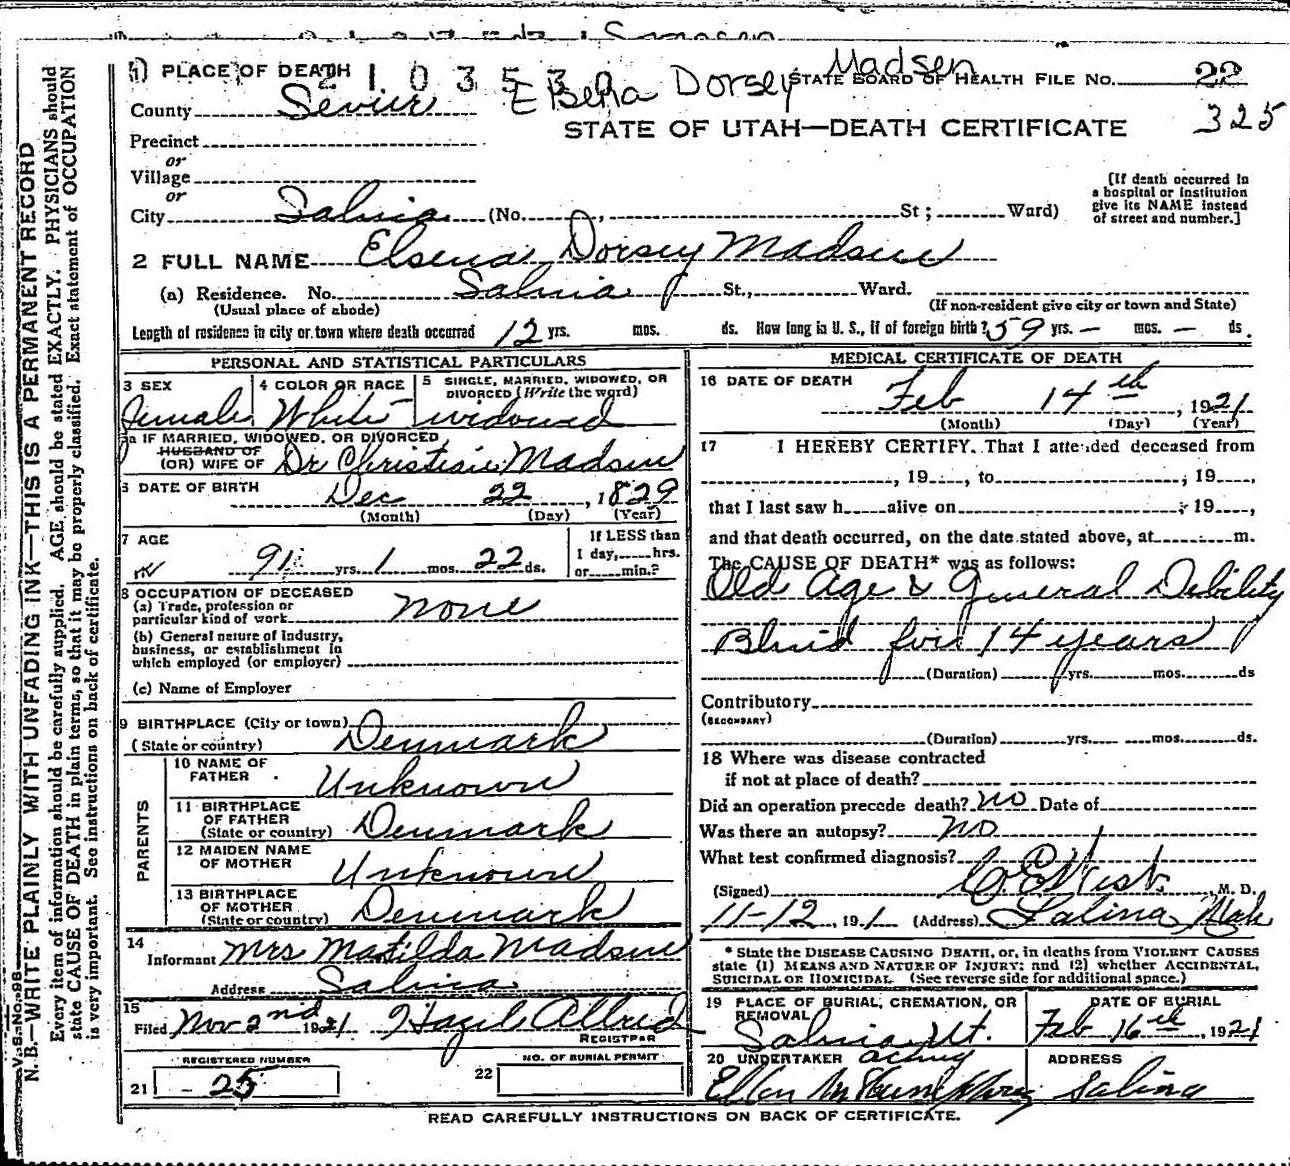 1) PLACE OF DEATH
2 1 0 3 5 3 0
Elsena Dorsey Madsen
STATE BOARD OF HEALTH FILE NO. 22
325
County Sevier
STATE OF UTAH—DEATH CERTIFICATE
Precinct
or
Village
or
[If death occurred in
a hospital or institution
give its NAME instead
of street and number.]
City Salina (No. , St ; Ward)
2 FULL NAME Elsena Dorsey Madsen
(a) Residence. No. Salina St., Ward.
(Usual place of abode) (If non-resident give city or town and State)
Length of residence in city or town where death occurred 12 yrs. mos. ds. How long in U. S., if of foreign birth? 59 yrs. — mos. — ds.
PERSONAL AND STATISTICAL PARTICULARS
3 SEX 4 COLOR OR RACE 5 SINGLE, MARRIED, WIDOWED, OR
DIVORCED (Write the word)
Female White widowed
5a IF MARRIED, WIDOWED, OR DIVORCED
HUSBAND OF
(OR) WIFE OF Dr Christian Madsen
6 DATE OF BIRTH Dec 22, 1829
(Month) (Day) (Year)
7 AGE
91 yrs. 1 mos. 22 ds.
If LESS than
1 day, hrs.
or min.?
8 OCCUPATION OF DECEASED
(a) Trade, profession or
particular kind of work none
(b) General nature of Industry,
business, or establishment in
which employed (or employer)
(c) Name of Employer
9 BIRTHPLACE (City or town)
(State or country) Denmark
PARENTS
10 NAME OF
FATHER Unknown
11 BIRTHPLACE
OF FATHER
(State or country) Denmark
12 MAIDEN NAME
OF MOTHER Unknown
13 BIRTHPLACE
OF MOTHER
(State or country) Denmark
14
Informant Mrs Matilda Madsen
Address Salina
15
Filed Nov 2nd 1921 Hazel Allred
REGISTRAR
REGISTERED NUMBER
21 - 25
NO. OF BURIAL PERMIT
22
MEDICAL CERTIFICATE OF DEATH
16 DATE OF DEATH
Feb 14th, 1921
(Month) (Day) (Year)
17 I HEREBY CERTIFY. That I attended deceased from
, 19 , to ; 19 ,
that I last saw h alive on ; 19 ,
and that death occurred, on the date stated above, at m.
The CAUSE OF DEATH* was as follows:
Old Age & General Debility
Blind for 14 years
(Duration) yrs. mos. ds
Contributory
(SECONDARY)
(Duration) yrs. mos. ds.
18 Where was disease contracted
if not at place of death?
Did an operation precede death? no Date of
Was there an autopsy? no
What test confirmed diagnosis?
(Signed) C E West, M. D.
11-12, 191 (Address) Salina Utah
* State the DISEASE CAUSING DEATH, or, in deaths from VIOLENT CAUSES
state (1) MEANS AND NATURE OF INJURY; and (2) whether ACCIDENTAL,
SUICIDAL OR HOMICIDAL. (See reverse side for additional space.)
19 PLACE OF BURIAL, CREMATION, OR
REMOVAL
Salina Ut.
DATE OF BURIAL
Feb 16th, 1921
20 UNDERTAKER acting
Ellen
ADDRESS
Salina
READ CAREFULLY INSTRUCTIONS ON BACK OF CERTIFICATE.
V. S. No. 98
N. B.—WRITE PLAINLY WITH UNFADING INK—THIS IS A PERMANENT RECORD
Every item of information should be carefully supplied. AGE should be stated EXACTLY. PHYSICIANS should
state CAUSE OF DEATH in plain terms, so that it may be properly classified. Exact statement of OCCUPATION
is very important. See instructions on back of certificate.